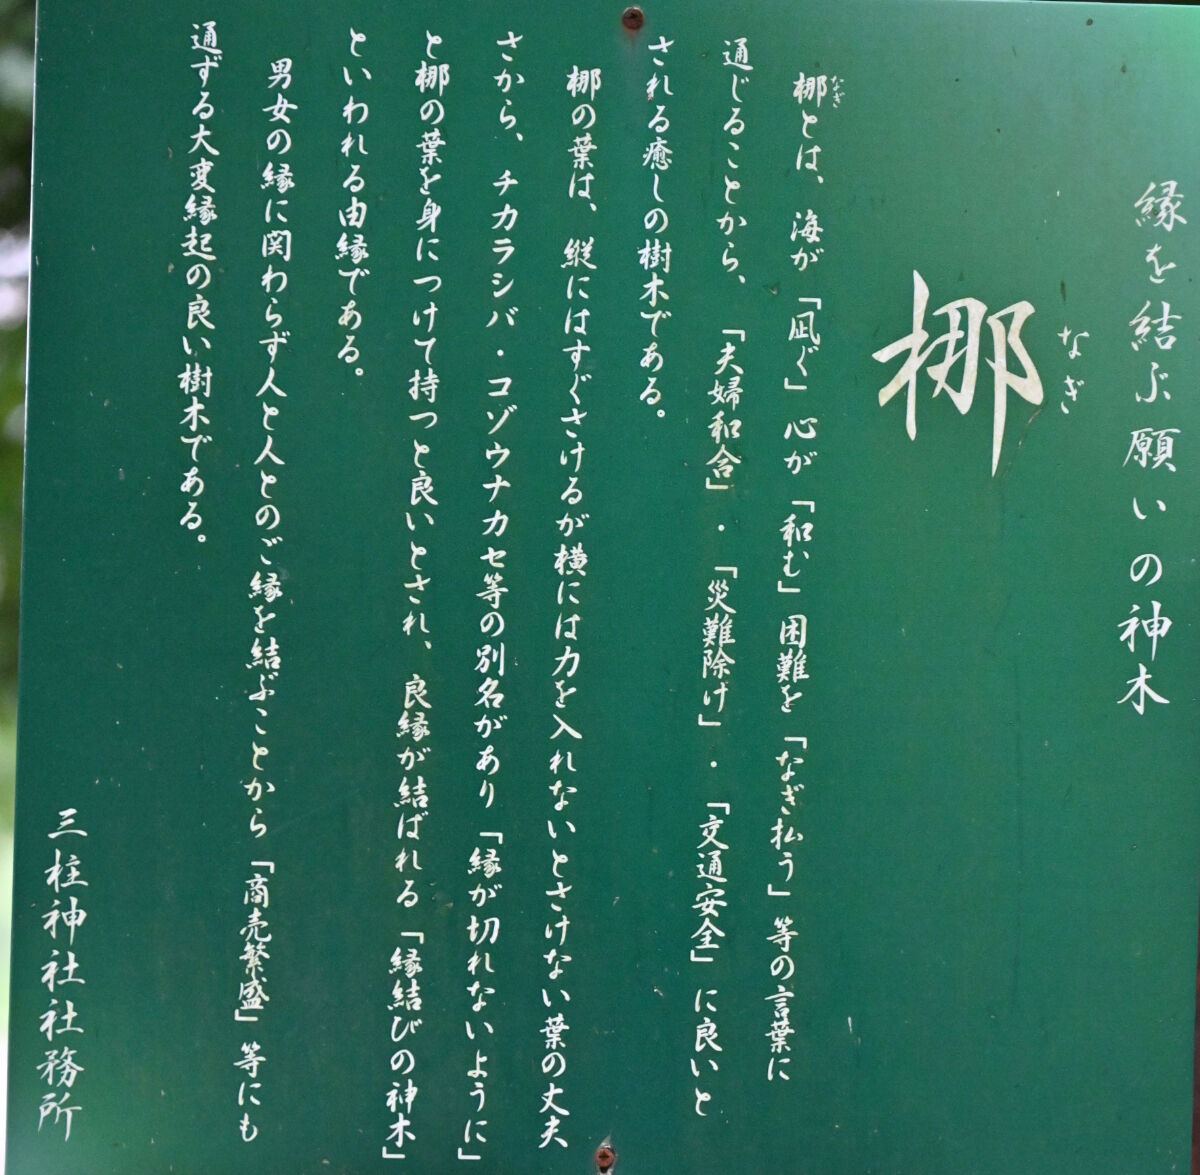 縁を結ぶ願いの神木
なぎ
梛
なぎ
梛とは、海が「凪ぐ」心が「和む」困難を「なぎ払う」等の言葉に
通じることから、「夫婦和合」・「災難除け」・「交通安全」に良いと
される癒しの樹木である。
梛の葉は、縦にはすぐさけるが横には力を入れないとさけない葉の丈夫
さから、チカラシバ・コゾウナカセ等の別名があり「縁が切れないように」
と梛の葉を身につけて持つと良いとされ、良縁が結ばれる「縁結びの神木」
といわれる由縁である。
男女の縁に関わらず人と人とのご縁を結ぶことから「商売繁盛」等にも
通ずる大変縁起の良い樹木である。
三柱神社社務所